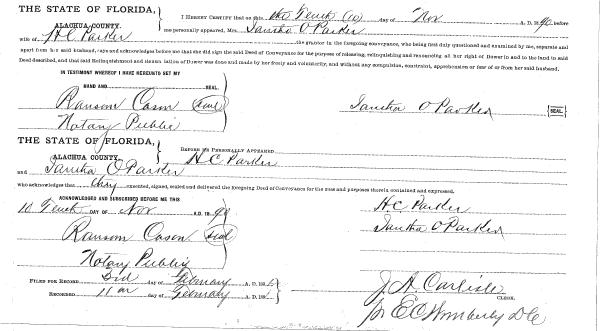 THE STATE OF FLORIDA,
ALACHUA COUNTY.
I HEREBY CERTIFY that on this the Tenth (10) day of Nov A. D. 1890 before
me personally appeared, Mrs. Ianthа O Parker
wife of H C Parker the grantor in the foregoing conveyance, who being first duly questioned and examined by me, separate and
apart from her said husband, says and acknowledges before me that she did sign the said Deed of Conveyance for the purpose of releasing, relinquishing and renouncing all her right of Dower in and to the land in said
Deed described, and that said Relinquishment and Renunciation of Dower was done and made by her freely and voluntarily, and without any compulsion, constraint, apprehension or fear of or from her said husband.
IN TESTIMONY WHEREOF I HAVE HEREUNTO SET MY
HAND AND SEAL.
Ransom Cason (Seal)
Notary Public
Iantha O Parker [SEAL]
THE STATE OF FLORIDA,
ALACHUA COUNTY.
BEFORE ME PERSONALLY APPEARED
H C Parker
and Iantha O Parker
who acknowledges that they executed, signed, sealed and delivered the foregoing Deed of Conveyance for the uses and purposes therein contained and expressed.
ACKNOWLEDGED AND SUBSCRIBED BEFORE ME THIS
10 Tenth DAY OF Nov A.D. 1890
Ransom Cason (Seal)
Notary Public
H C. Parker
Iantha O Parker
FILED FOR RECORD 3rd day of February A. D. 189
RECORDED 11 day of February A. D. 189
J. A. Carlisle
CLERK.
pr E C Wimberly D C